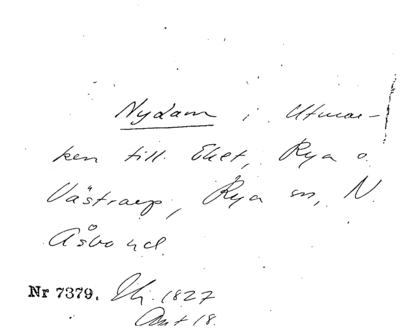 Nydam i Utmar-
ken till Eket, Rya o.
Västraup, Rya sn, N.
Åsbo hd.
Nr 7379. 1827
18.